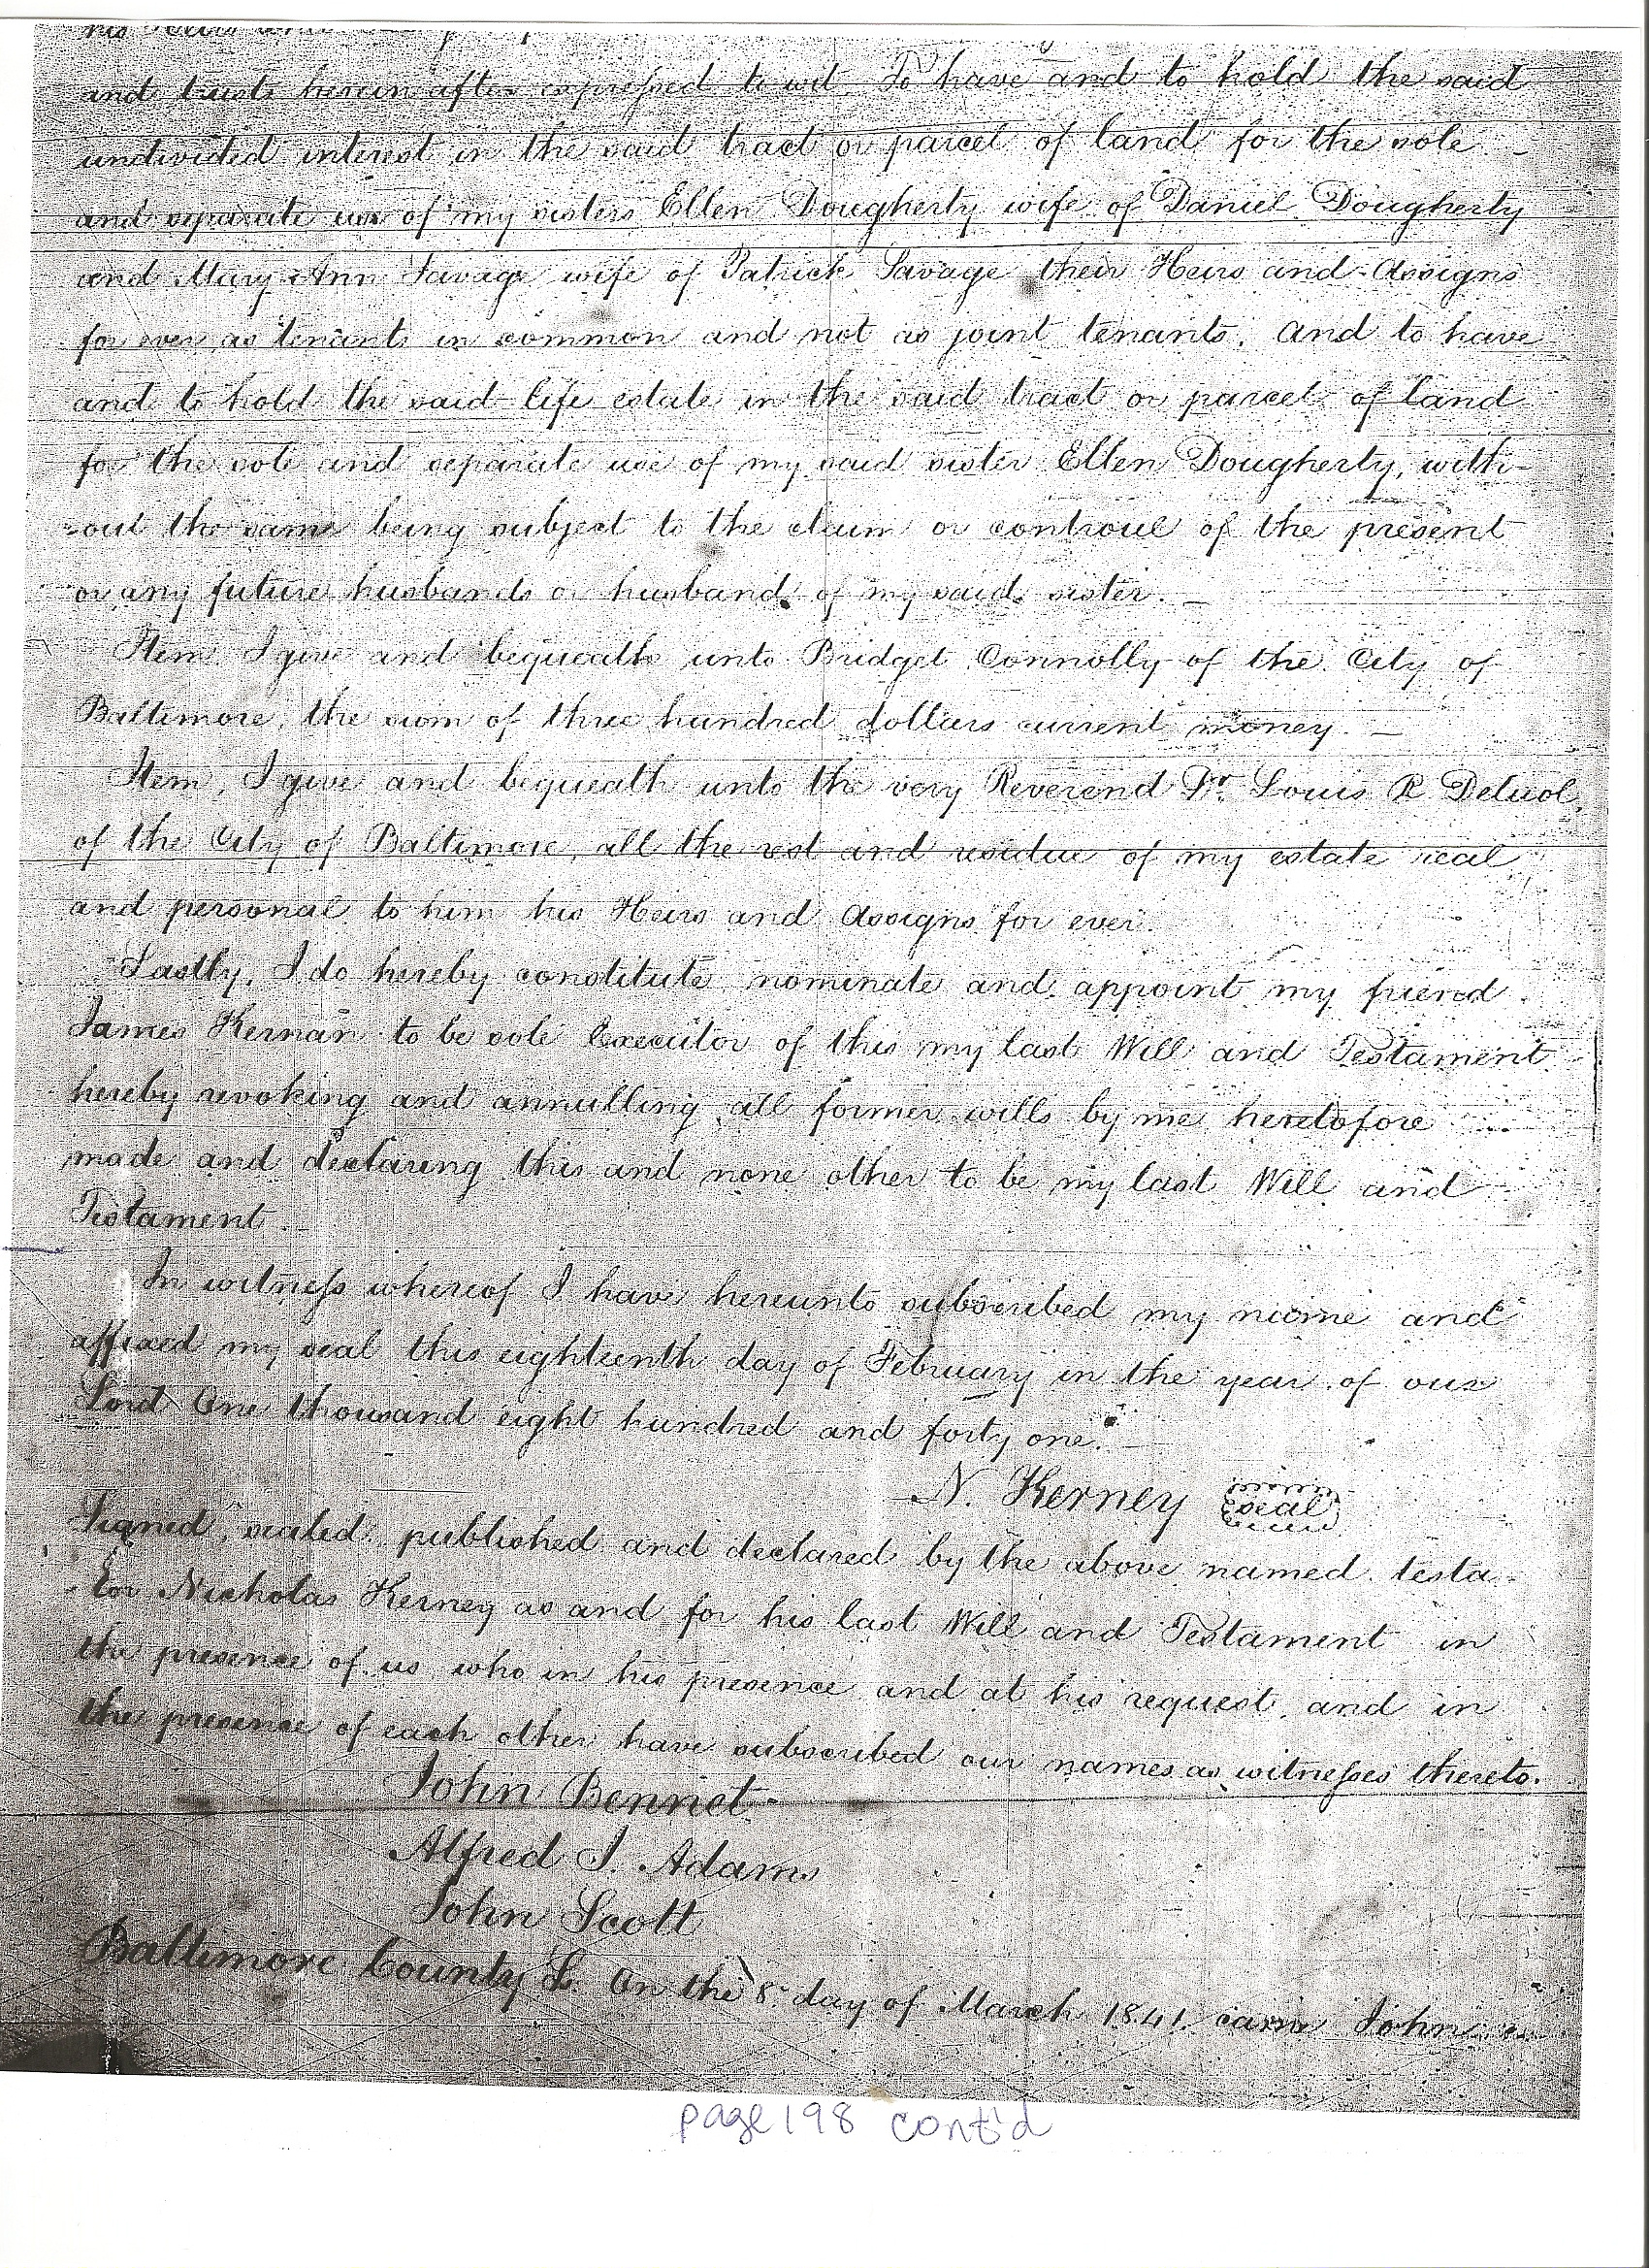 his Heirs and
and trusts herein after expressed to wit. To have and to hold the said
undivided interest in the said tract or parcel of land for the sole
and separate use of my sisters Ellen Dougherty wife of Daniel Dougherty
and Mary Ann Savage wife of Patrick Savage their Heirs and Assigns
for ever as tenants in common and not as joint tenants. and to have
and to hold the said life estate in the said tract or parcel of land
for the sole and separate use of my said sister Ellen Dougherty, with-
-out the same being subject to the claim or controul of the present
or any future husbands or husband of my said sister. -
Item I give and bequeath unto Bridget Connolly of the City of
Baltimore, the sum of three hundred dollars current money. -
Item, I give and bequeath unto the very Reverend Dr. Louis R Deluol,
of the City of Baltimore, all the rest and residue of my estate real
and personal to him his Heirs and Assigns for ever.
Lastly, I do hereby constitute nominate and appoint my friend
James Kernan to be sole Executor of this my last Will and Testament
hereby revoking and annulling all former wills by me heretofore
made and declaring this and none other to be my last Will and
Testament.
In witness whereof I have hereunto subscribed my name and
affixed my seal this eighteenth day of February in the year of our
Lord One thousand eight hundred and forty one.
N. Kerney seal
Signed, sealed published and declared by the above named testa-
-tor Nicholas Kerney as and for his last Will and Testament in
the presence of us who in his presence and at his request and in
the presence of each other have subscribed our names as witnesses thereto.
John Bennet
Alfred J. Adams
John Scott
Baltimore County Sc. On the 8 day of March 1841. came John
page 198 cont'd